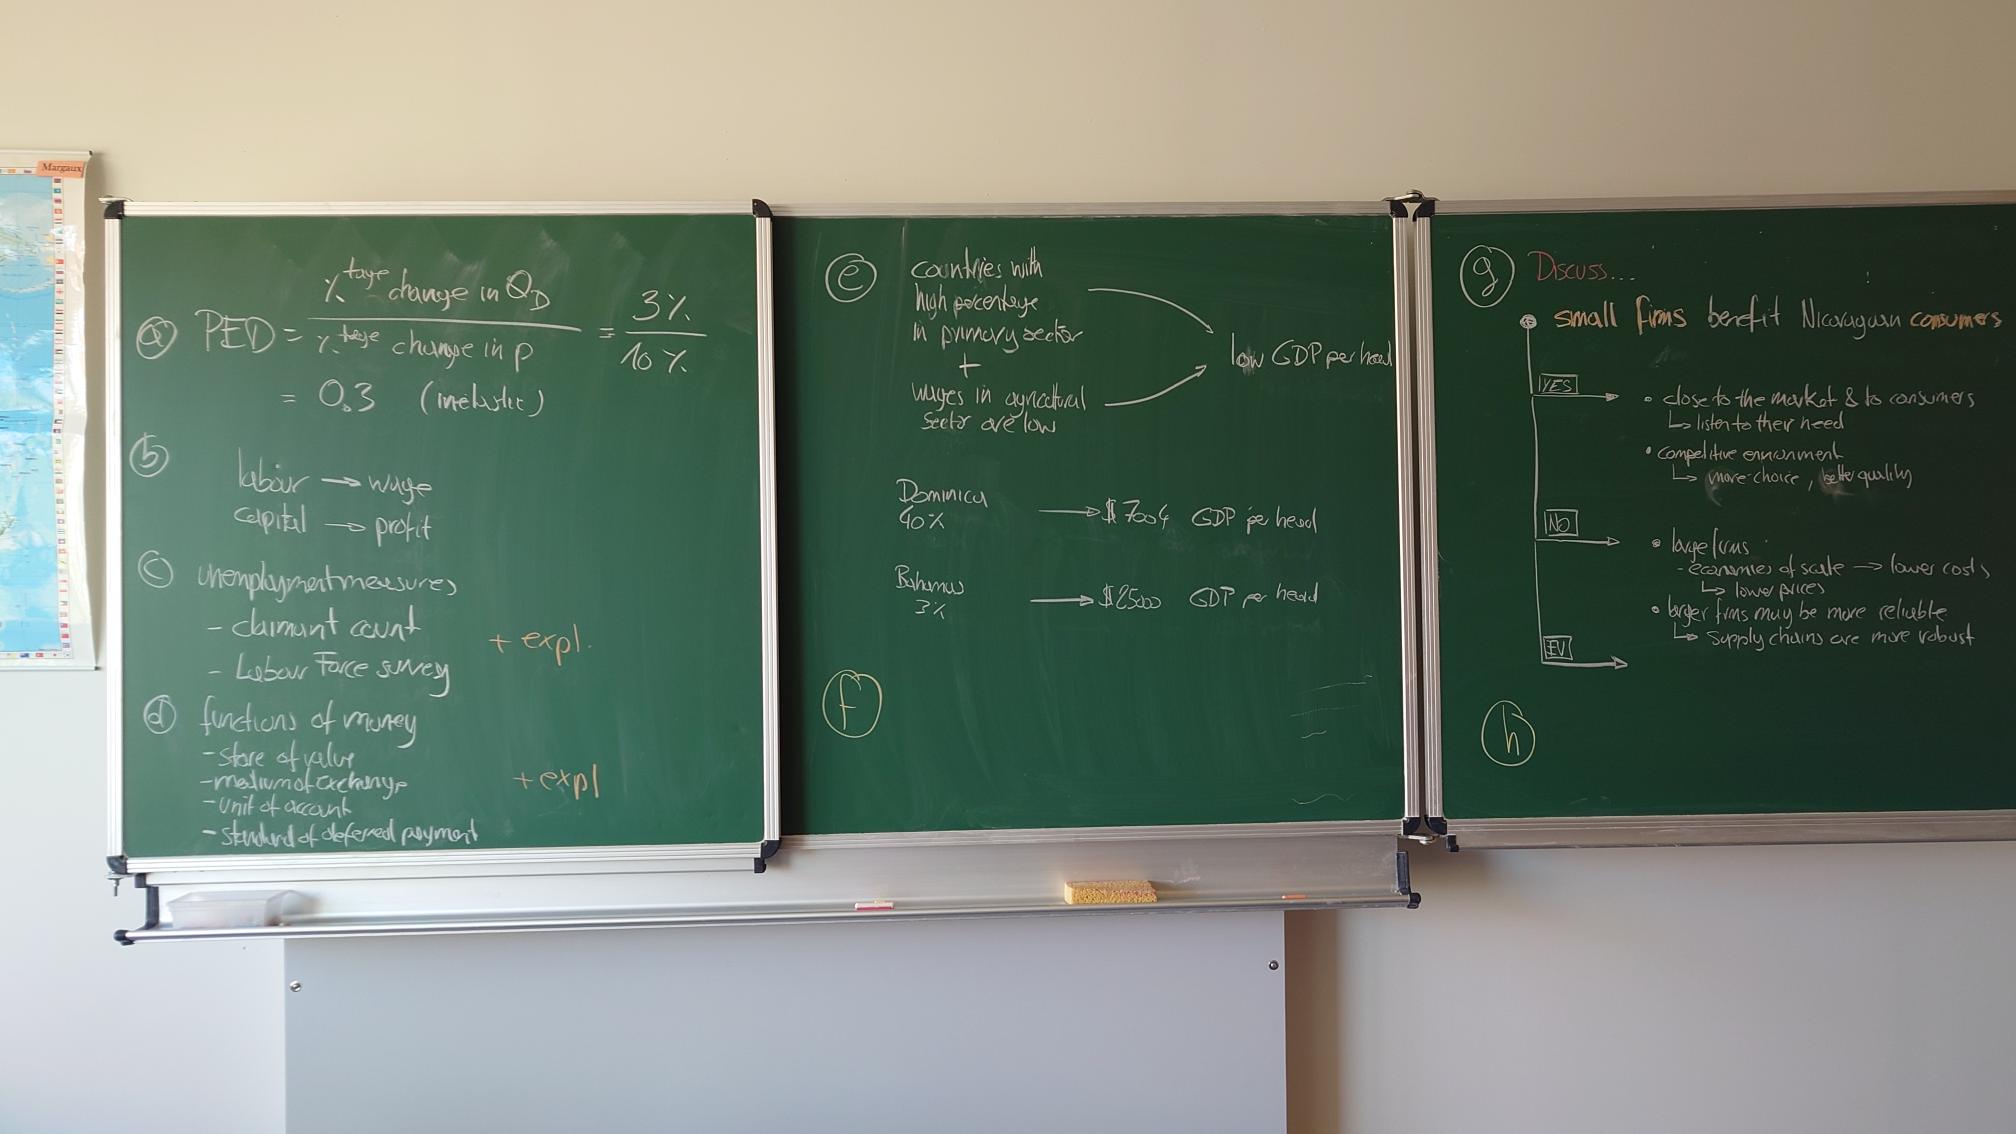 Margaux
(a) PED = %tage change in QD / %tage change in p = 3% / 10%
= 0.3 (inelastic)
(b)
labour → wage
capital → profit
(c) unemployment measures
- claimant count
- Labour Force survey
+ expl.
(d) functions of money
- store of value
- medium of exchange
- unit of account
- standard of deferred payment
+ expl
(e) countries with
high percentage
in primary sector
+
wages in agricultural
sector are low
low GDP per head
Dominica
40% → $7004 GDP per head
Bahamas
3% → $25000 GDP per head
(f)
(g) Discuss...
small firms benefit Nicaraguan consumers
YES
• close to the market & to consumers
↳ listen to their need
• competitive environment
↳ more choice, better quality
NO
• large firms
- economies of scale → lower costs
↳ lower prices
• larger firms may be more reliable
↳ supply chains are more robust
EV
(h)